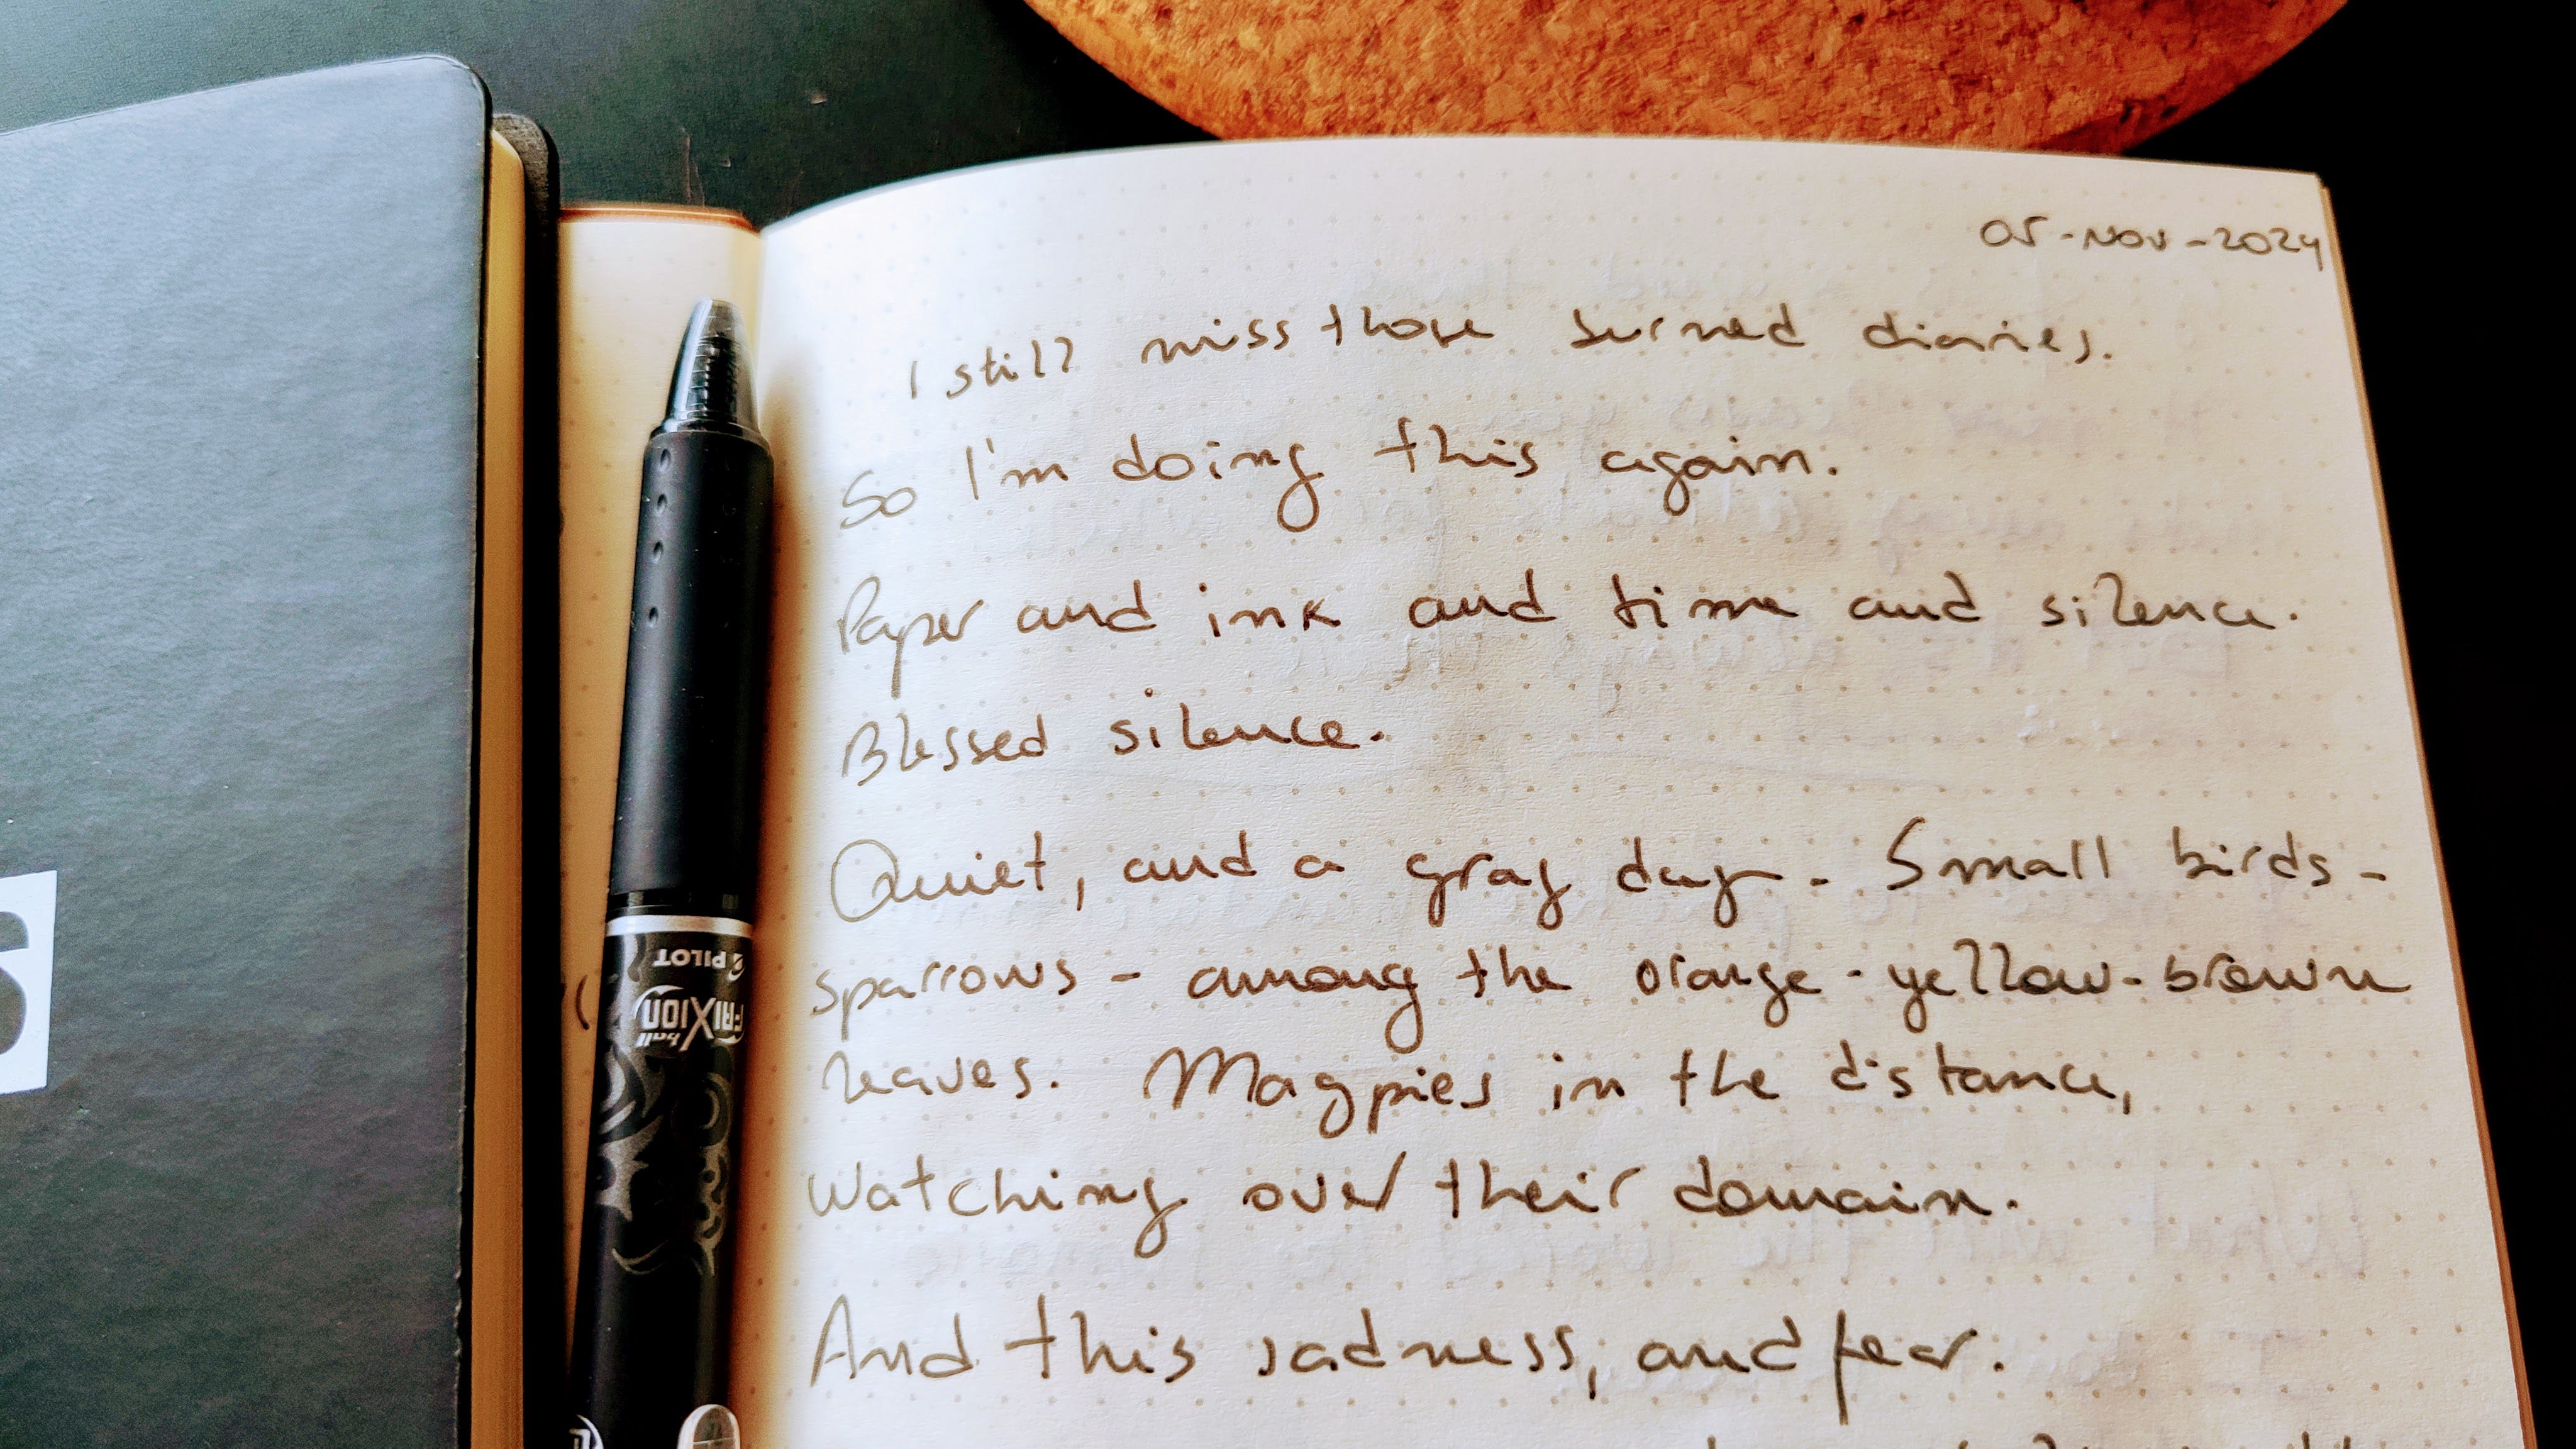 05-Nov-2024
I still miss those burned diaries.
So I'm doing this again.
Paper and ink and time and silence.
Blessed silence.
Quiet, and a gray day. Small birds -
sparrows - among the orange-yellow-brown
leaves. Magpies in the distance,
watching over their domain.
And this sadness, and fear.
PILOT
FRIXION
ball